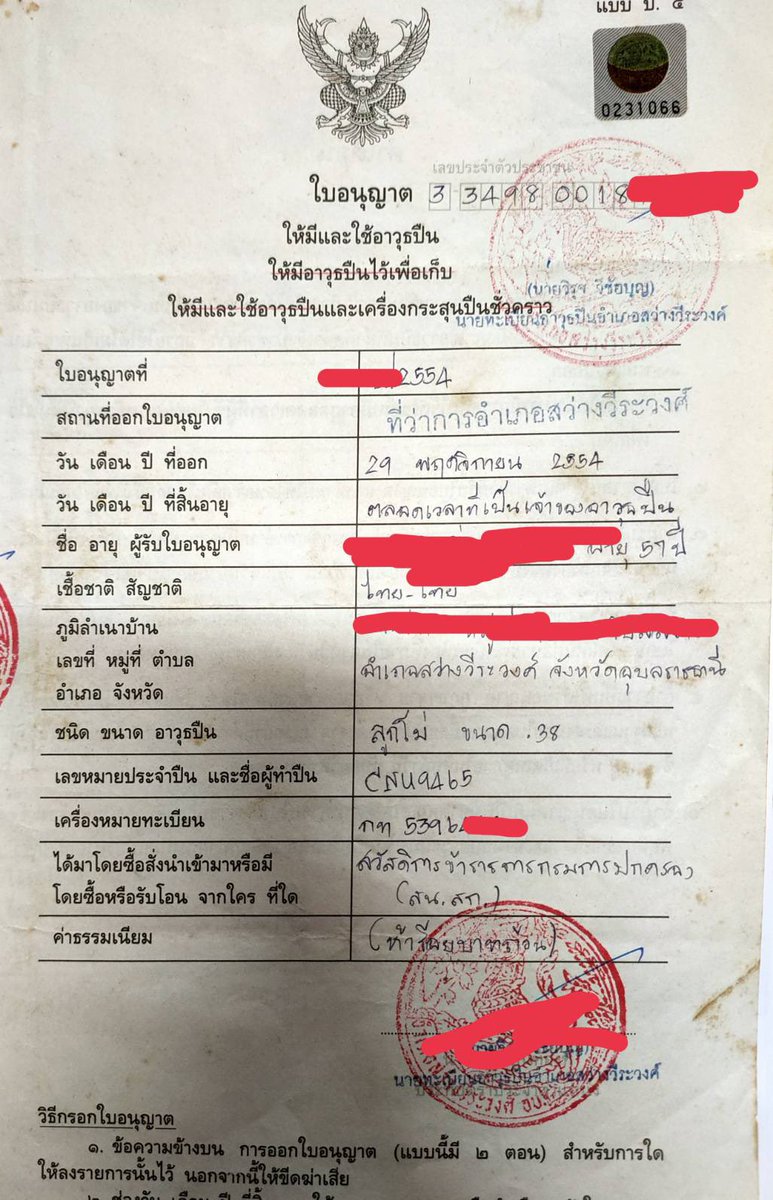 แบบ ป. ๔
0231066
เลขประจำตัวประชาชน
ใบอนุญาต 3 3498 0018
ให้มีและใช้อาวุธปืน
ให้มีอาวุธปืนไว้เพื่อเก็บ
ให้มีและใช้อาวุธปืนและเครื่องกระสุนปืนชั่วคราว
นายทะเบียนอาวุธปืนอำเภอสว่างวีระวงศ์
ใบอนุญาตที่ /2554
สถานที่ออกใบอนุญาต ที่ว่าการอำเภอสว่างวีระวงศ์
วัน เดือน ปี ที่ออก 29 พฤศจิกายน 2554
วัน เดือน ปี ที่สิ้นอายุ ตลอดเวลาที่เป็นเจ้าของอาวุธปืน
ชื่อ อายุ ผู้รับใบอนุญาต อายุ 57 ปี
เชื้อชาติ สัญชาติ ไทย-ไทย
ภูมิลำเนาบ้าน
เลขที่ หมู่ที่ ตำบล อำเภอสว่างวีระวงศ์ จังหวัดอุบลราชธานี
อำเภอ จังหวัด
ชนิด ขนาด อาวุธปืน ลูกโม่ ขนาด .38
เลขหมายประจำปืน และชื่อผู้ทำปืน CNU9465
เครื่องหมายทะเบียน กท 5396
ได้มาโดยซื้อสั่งนำเข้ามาหรือมี สวัสดิการข้าราชการกรมการปกครอง
โดยซื้อหรือรับโอน จากใคร ที่ใด (สน.สก.)
ค่าธรรมเนียม (ห้าร้อยบาทถ้วน)
นายทะเบียนอาวุธปืนอำเภอสว่างวีระวงศ์
วิธีกรอกใบอนุญาต
๑. ข้อความข้างบน การออกใบอนุญาต (แบบนี้มี ๒ ตอน) สำหรับการใด
ให้ลงรายการนั้นไว้ นอกจากนี้ให้ขีดฆ่าเสีย